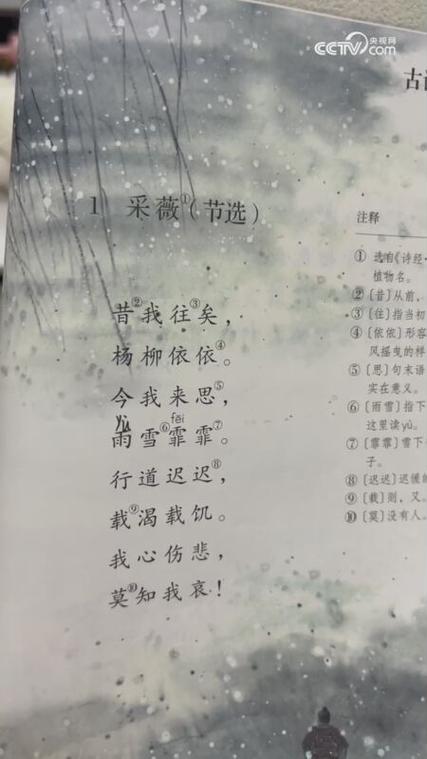 央视网
CCTV.com
古
1 采薇①(节选)
昔②我往③矣，
杨柳依依④。
今我来思⑤，
yù fēi
雨雪⑥霏霏⑦。
行道迟迟⑧，
载⑨渴载饥。
我心伤悲，
莫⑩知我哀！
注释
① 选自《诗经·
植物名。
②〔昔〕从前，
③〔往〕指当初
④〔依依〕形容
风摇曳的样
⑤〔思〕句末语
实在意义。
⑥〔雨雪〕指下
这里读yù。
⑦〔霏霏〕雪下
子。
⑧〔迟迟〕迟缓的
⑨〔载〕则，又。
⑩〔莫〕没有人。